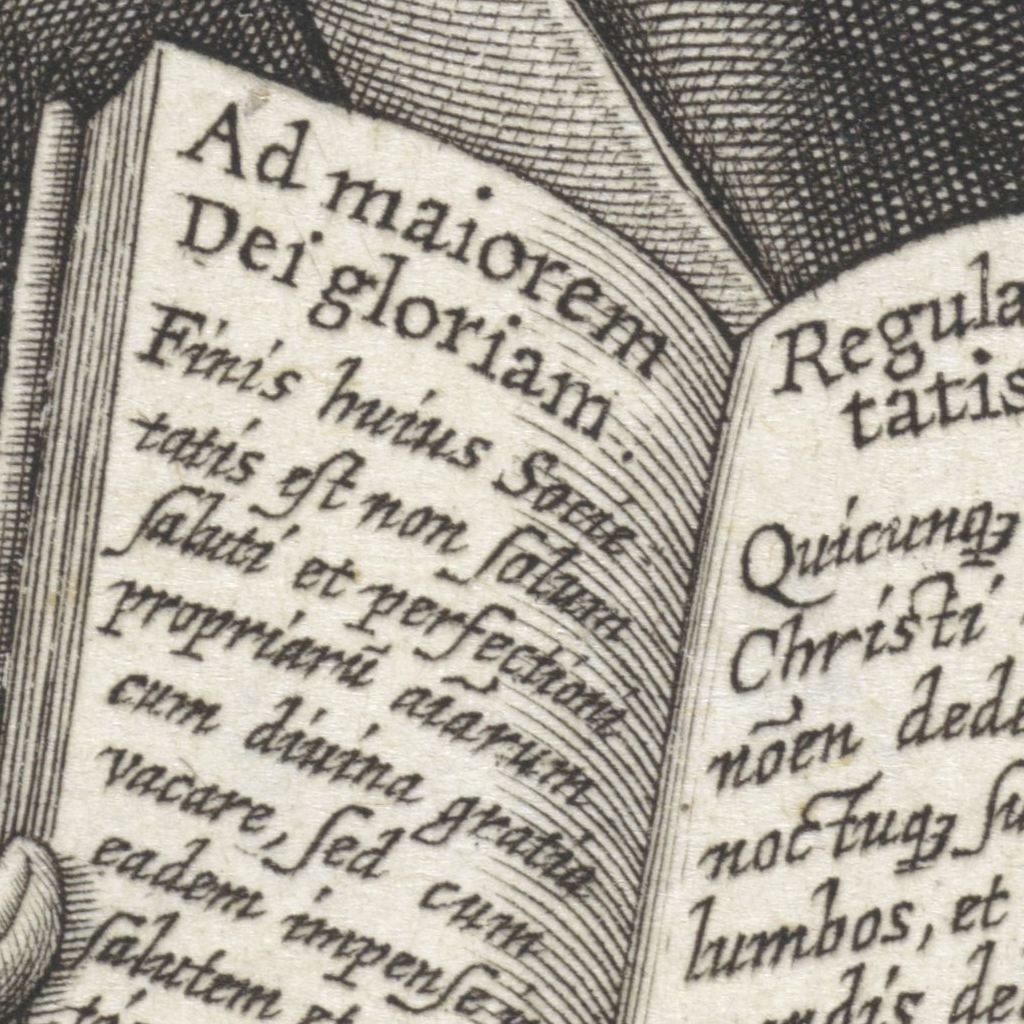 Ad maiorem
Dei gloriam.
Finis huius Socie
tatis eſt non ſolum
ſaluti et perfectioni
propriarū aīarum
cum diuina gratia
vacare, ſed cum
eadem impenſe in
ſalutem et
Regula
tatis
Quicunqꝫ
Christi
nōen dede
noctuqꝫ ſu
lumbos, et